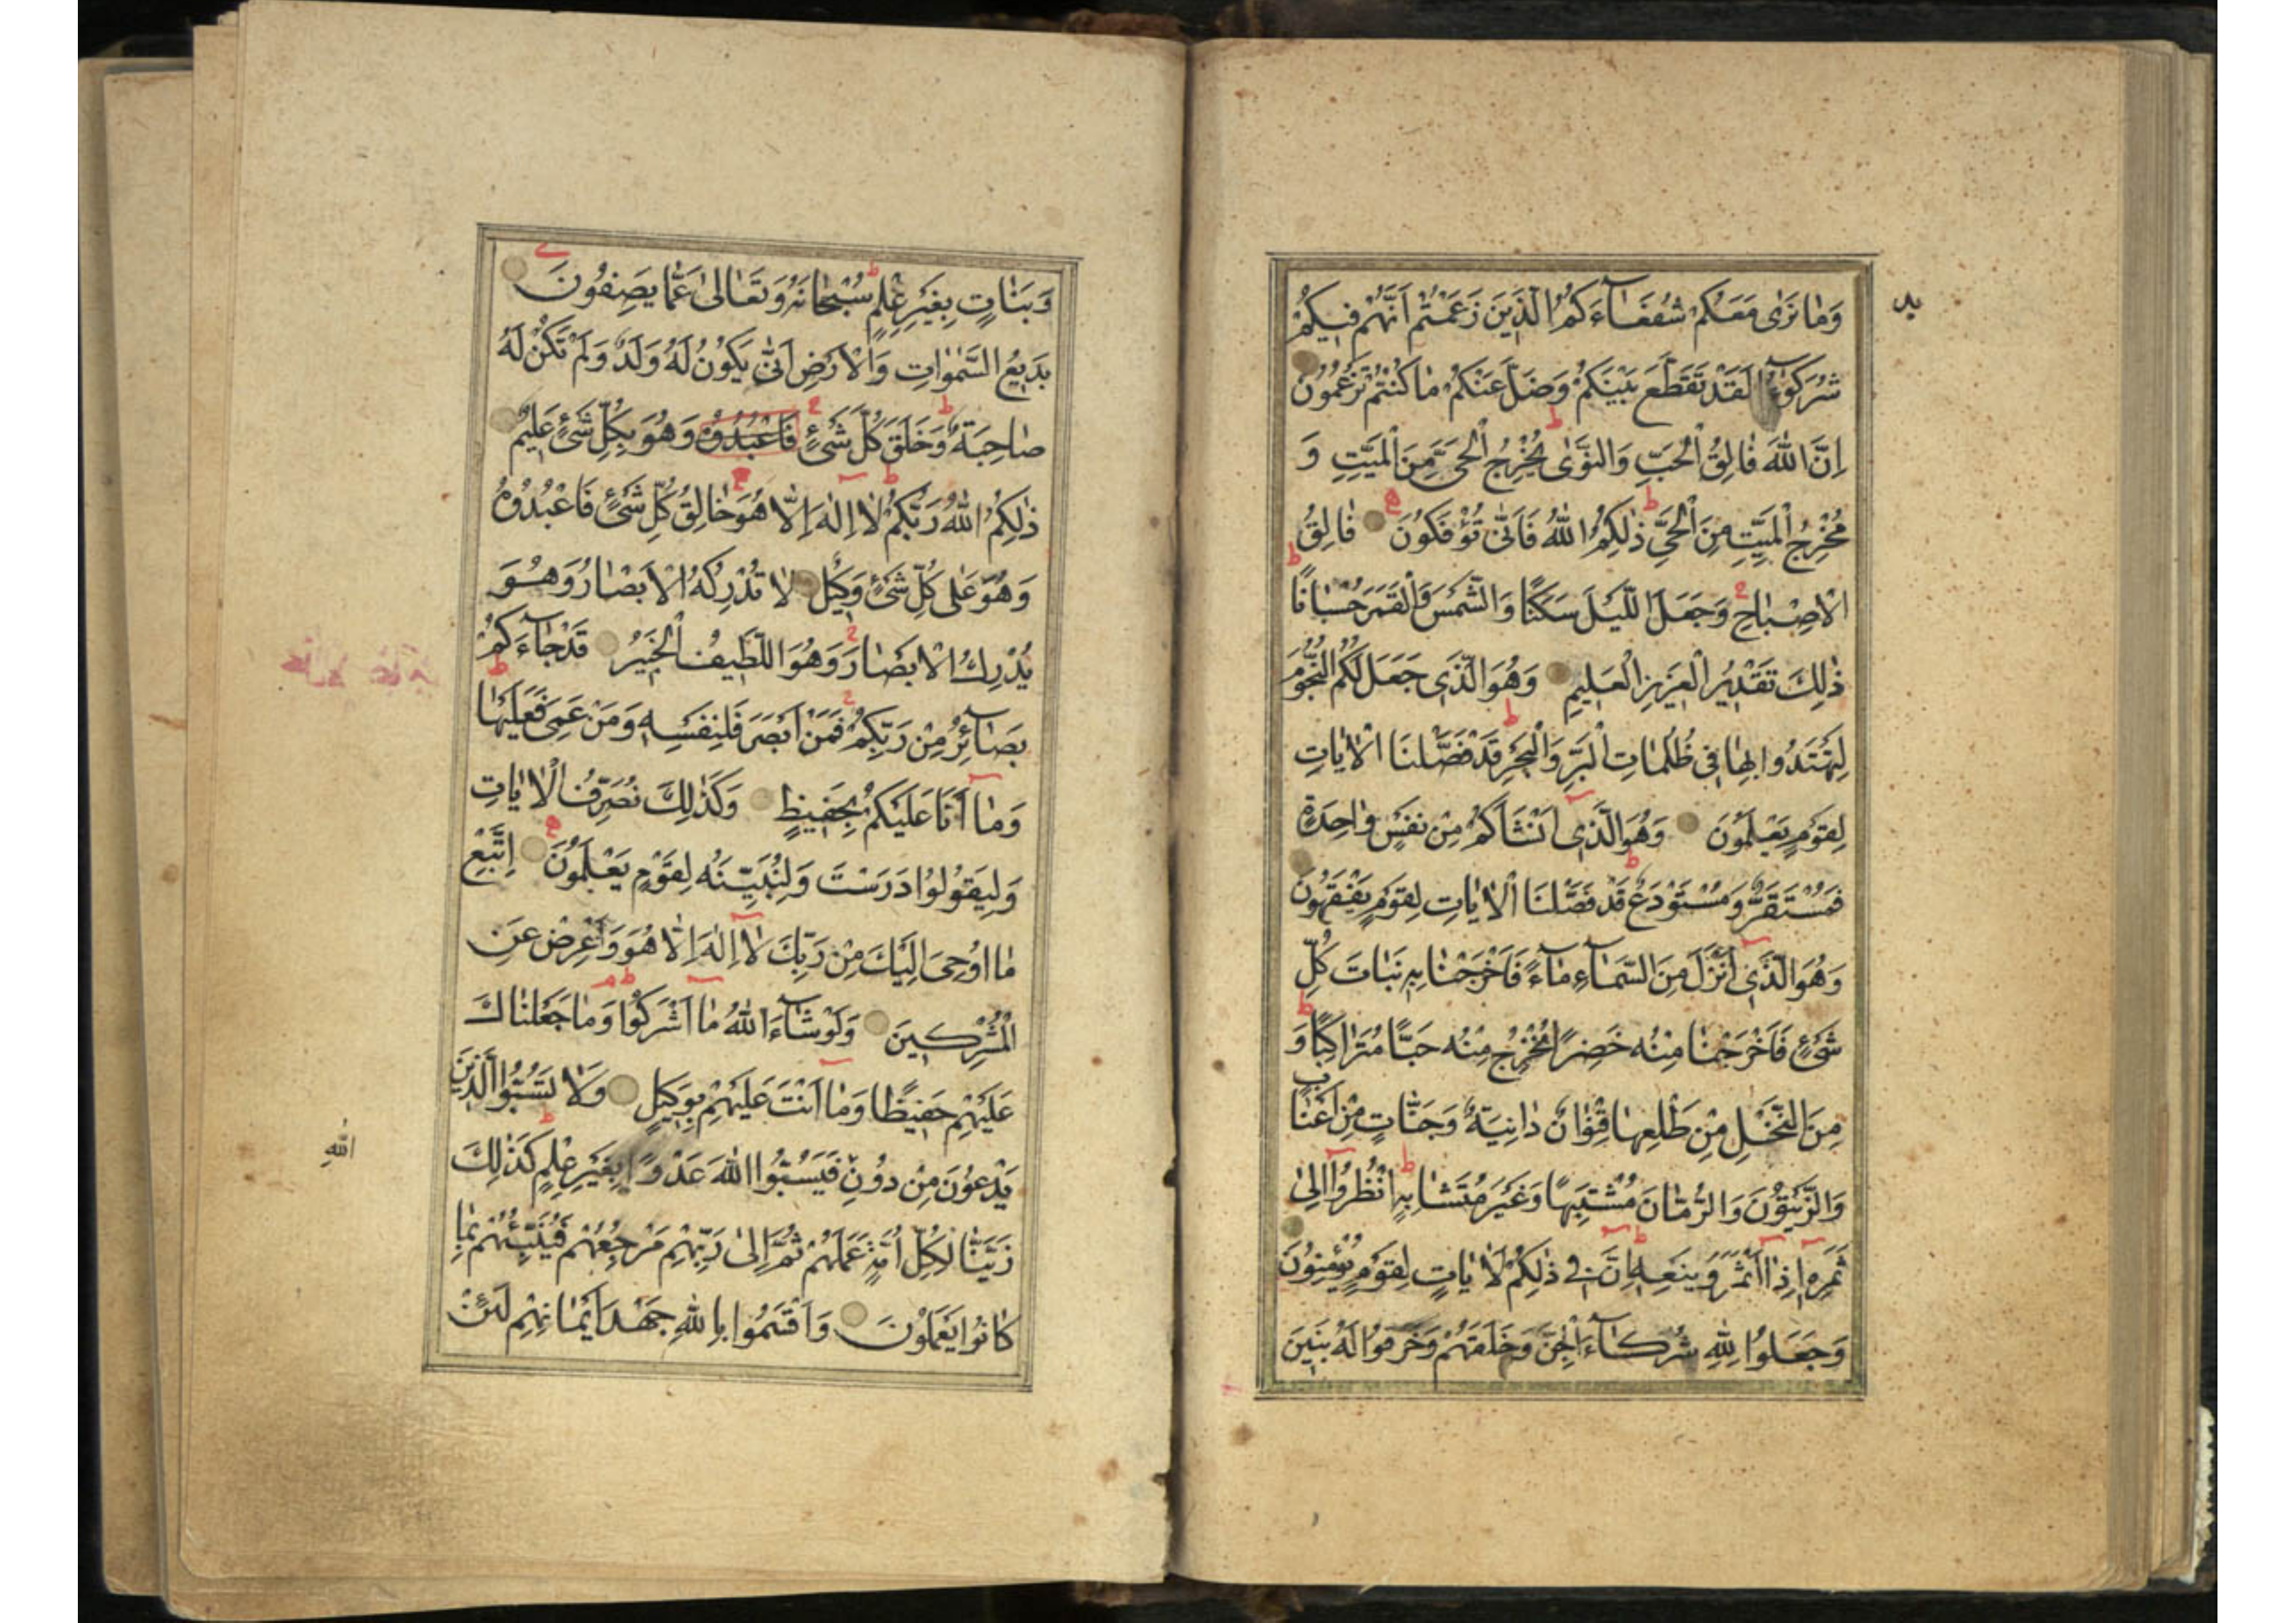 وَمٰا نَرٰى مَعَكُمْ شُفَعٰآءَكُمُ الَّذِينَ زَعَمْتُمْ اَنَّهُمْ فِيكُمْ
شُرَكٰؤُا لَقَدْ تَقَطَّعَ بَيْنَكُمْ وَضَلَّ عَنْكُمْ مٰا كُنْتُمْ تَزْعُمُونَ
اِنَّ اللّٰهَ فٰالِقُ الْحَبِّ وَالنَّوٰى يُخْرِجُ الْحَيَّ مِنَ الْمَيِّتِ وَ
مُخْرِجُ الْمَيِّتِ مِنَ الْحَيِّ ذٰلِكُمُ اللّٰهُ فَاَنّٰى تُؤْفَكُونَ فٰالِقُ
الْاِصْبٰاحِ وَجَعَلَ اللَّيْلَ سَكَنًا وَالشَّمْسَ وَالْقَمَرَ حُسْبٰانًا
ذٰلِكَ تَقْدِيرُ الْعَزِيزِ الْعَلِيمِ وَهُوَ الَّذِي جَعَلَ لَكُمُ النُّجُومَ
لِتَهْتَدُوا بِهٰا فِي ظُلُمٰاتِ الْبَرِّ وَالْبَحْرِ قَدْ فَصَّلْنَا الْاٰيٰاتِ
لِقَوْمٍ يَعْلَمُونَ وَهُوَ الَّذِي اَنْشَاَكُمْ مِنْ نَفْسٍ وٰاحِدَةٍ
فَمُسْتَقَرٌّ وَمُسْتَوْدَعٌ قَدْ فَصَّلْنَا الْاٰيٰاتِ لِقَوْمٍ يَفْقَهُونَ
وَهُوَ الَّذِي اَنْزَلَ مِنَ السَّمٰآءِ مٰآءً فَاَخْرَجْنٰا بِهِ نَبٰاتَ كُلِّ
شَيْءٍ فَاَخْرَجْنٰا مِنْهُ خَضِرًا نُخْرِجُ مِنْهُ حَبًّا مُتَرٰاكِبًا وَ
مِنَ النَّخْلِ مِنْ طَلْعِهٰا قِنْوٰانٌ دٰانِيَةٌ وَجَنّٰاتٍ مِنْ اَعْنٰابٍ
وَالزَّيْتُونَ وَالرُّمّٰانَ مُشْتَبِهًا وَغَيْرَ مُتَشٰابِهٍ اُنْظُرُوا اِلىٰ
ثَمَرِهِ اِذٰا اَثْمَرَ وَيَنْعِهِ اِنَّ فِي ذٰلِكُمْ لَاٰيٰاتٍ لِقَوْمٍ يُؤْمِنُونَ
وَجَعَلُوا لِلّٰهِ شُرَكٰآءَ الْجِنَّ وَخَلَقَهُمْ وَخَرَقُوا لَهُ بَنِينَ
وَبَنٰاتٍ بِغَيْرِ عِلْمٍ سُبْحٰانَهُ وَتَعٰالىٰ عَمّٰا يَصِفُونَ
بَدِيعُ السَّمٰوٰاتِ وَالْاَرْضِ اَنّٰى يَكُونُ لَهُ وَلَدٌ وَلَمْ تَكُنْ لَهُ
صٰاحِبَةٌ وَخَلَقَ كُلَّ شَيْءٍ فَاعْبُدُوهُ وَهُوَ بِكُلِّ شَيْءٍ عَلِيمٌ
ذٰلِكُمُ اللّٰهُ رَبُّكُمْ لٰا اِلٰهَ اِلّٰا هُوَ خٰالِقُ كُلِّ شَيْءٍ فَاعْبُدُوهُ
وَهُوَ عَلىٰ كُلِّ شَيْءٍ وَكِيلٌ لٰا تُدْرِكُهُ الْاَبْصٰارُ وَهُوَ
يُدْرِكُ الْاَبْصٰارَ وَهُوَ اللَّطِيفُ الْخَبِيرُ قَدْ جٰآءَكُمْ
بَصٰآئِرُ مِنْ رَبِّكُمْ فَمَنْ اَبْصَرَ فَلِنَفْسِهِ وَمَنْ عَمِيَ فَعَلَيْهٰا
وَمٰا اَنَا عَلَيْكُمْ بِحَفِيظٍ وَكَذٰلِكَ نُصَرِّفُ الْاٰيٰاتِ
وَلِيَقُولُوا دَرَسْتَ وَلِنُبَيِّنَهُ لِقَوْمٍ يَعْلَمُونَ اِتَّبِعْ
مٰا اُوحِيَ اِلَيْكَ مِنْ رَبِّكَ لٰا اِلٰهَ اِلّٰا هُوَ وَاَعْرِضْ عَنِ
الْمُشْرِكِينَ وَلَوْ شٰآءَ اللّٰهُ مٰا اَشْرَكُوا وَمٰا جَعَلْنٰاكَ
عَلَيْهِمْ حَفِيظًا وَمٰا اَنْتَ عَلَيْهِمْ بِوَكِيلٍ وَلٰا تَسُبُّوا الَّذِينَ
يَدْعُونَ مِنْ دُونِ فَيَسُبُّوا اللّٰهَ عَدْوًا بِغَيْرِ عِلْمٍ كَذٰلِكَ
اللّٰهِ
زَيَّنّٰا لِكُلِّ اُمَّةٍ عَمَلَهُمْ ثُمَّ اِلىٰ رَبِّهِمْ مَرْجِعُهُمْ فَيُنَبِّئُهُمْ بِمٰا
كٰانُوا يَعْمَلُونَ وَاَقْسَمُوا بِاللّٰهِ جَهْدَ اَيْمٰانِهِمْ لَئِنْ